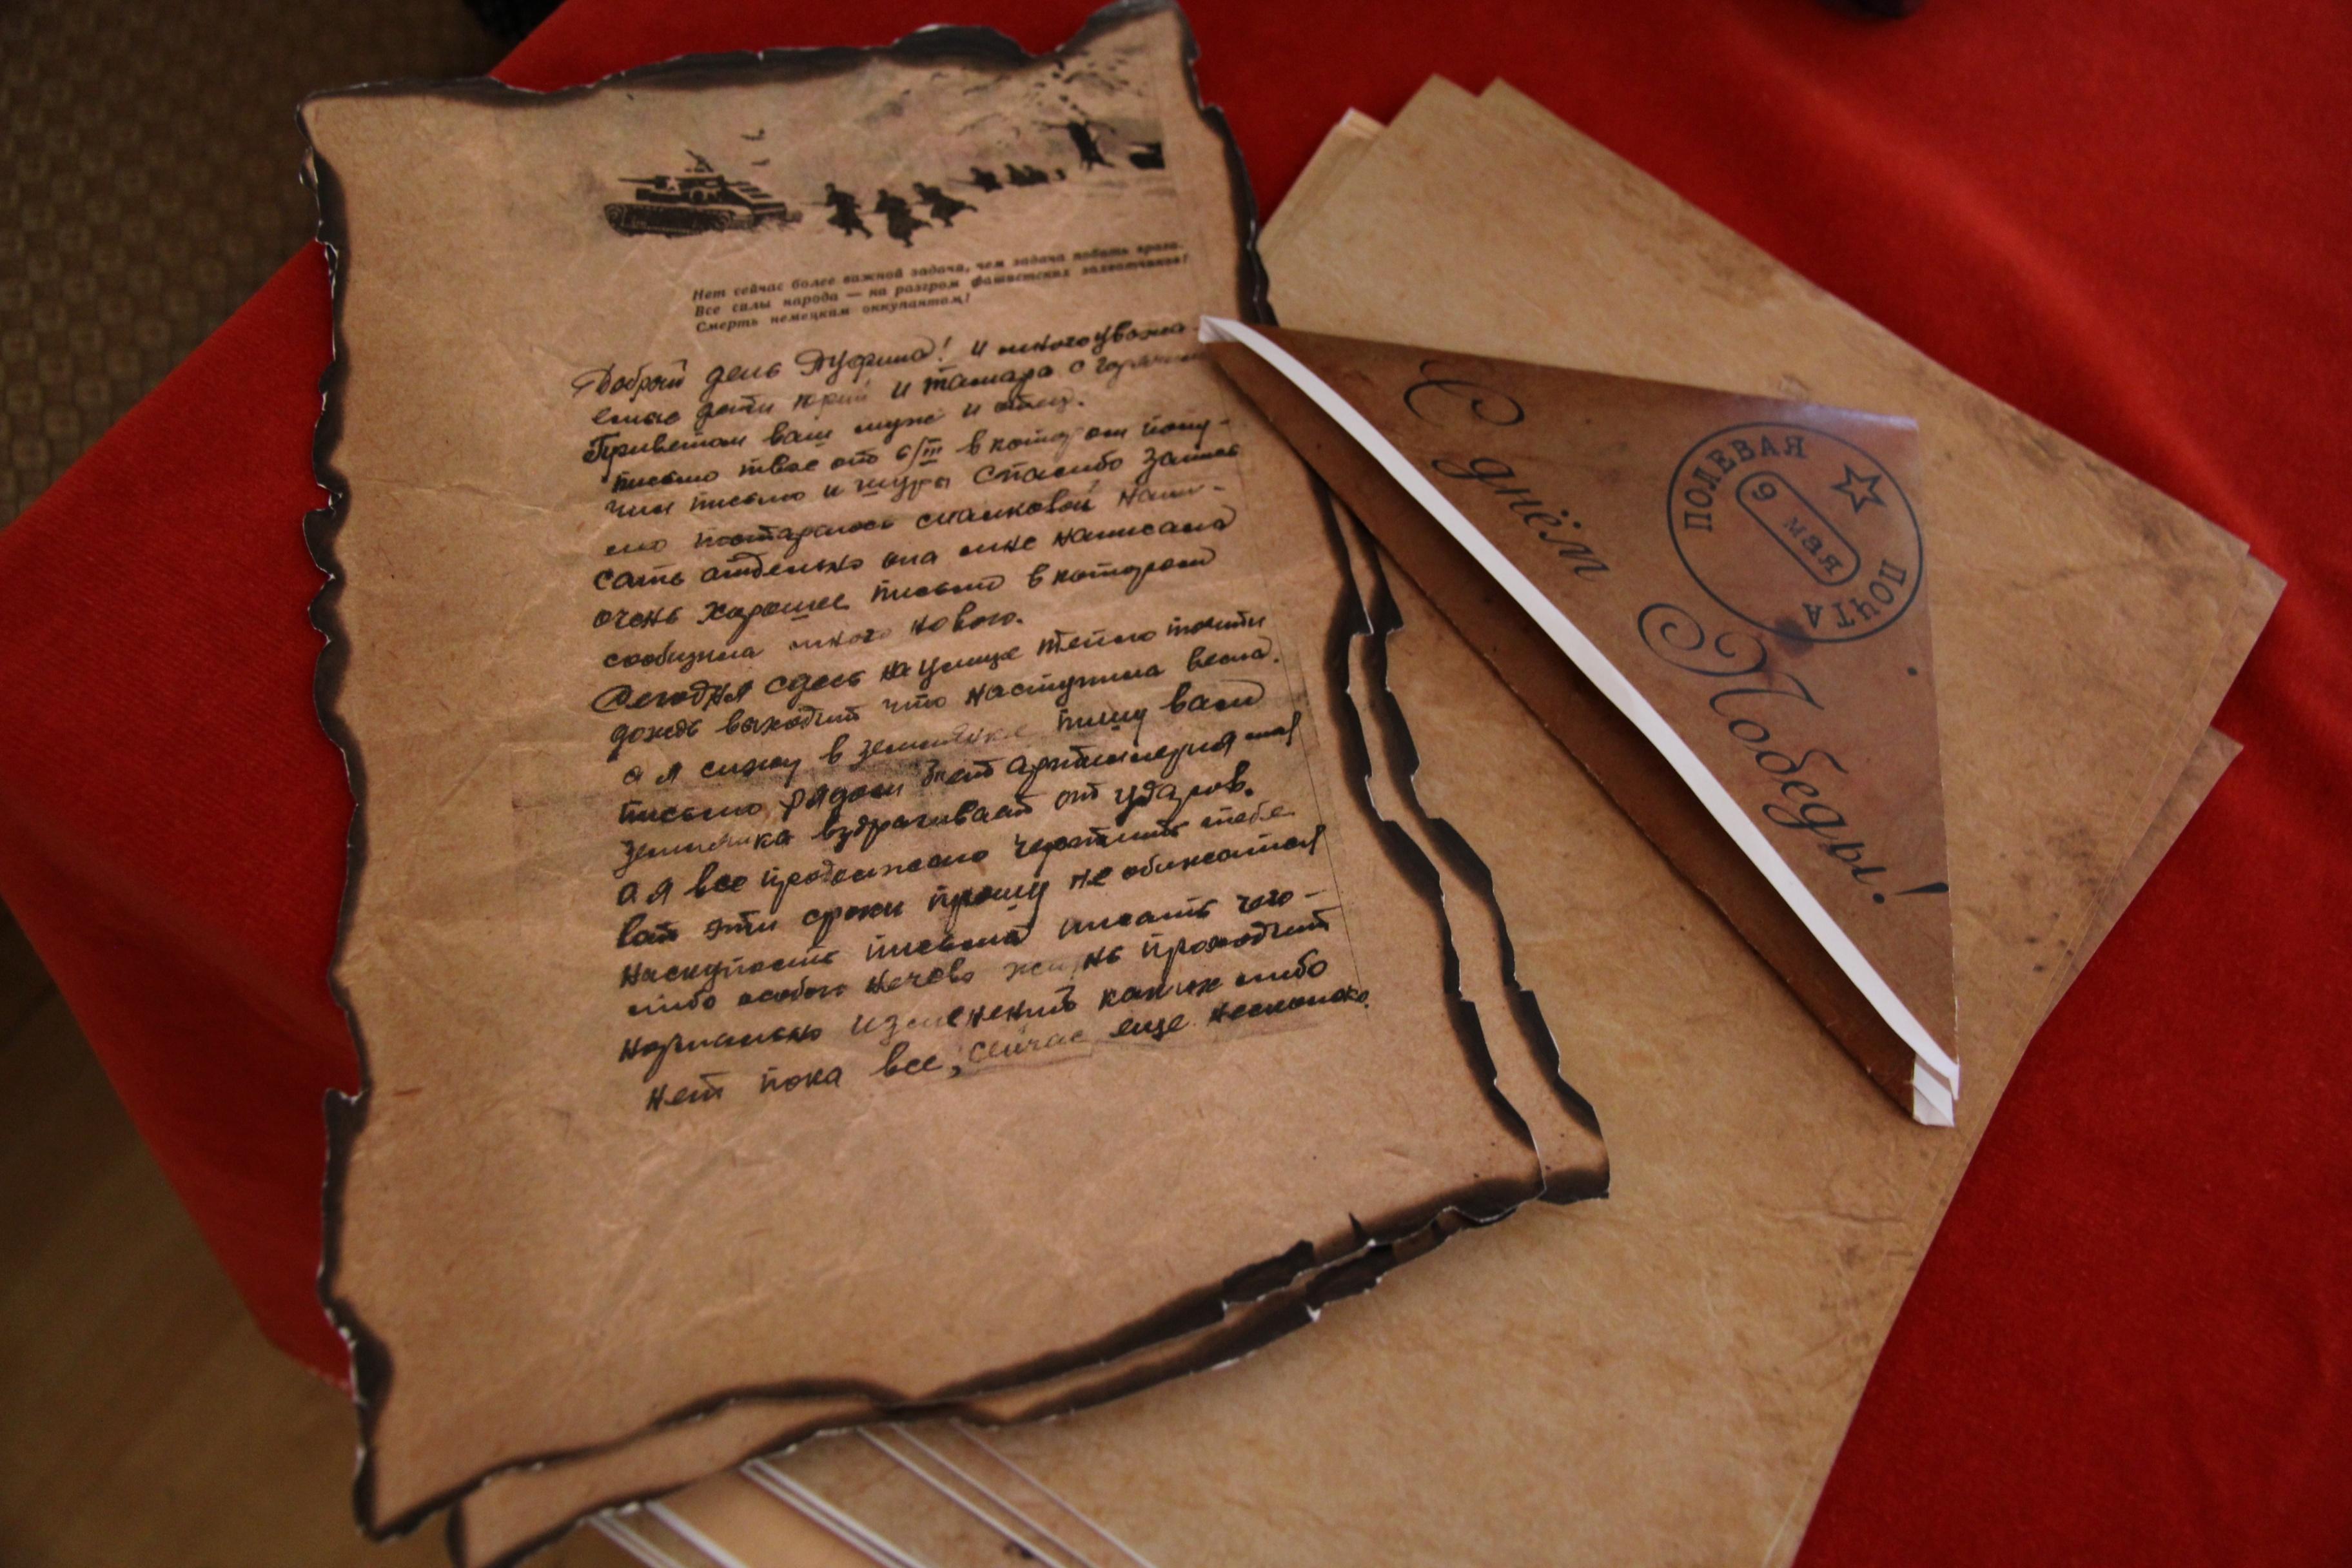 Нет сейчас более важной задачи, чем задача побить врага.
Все силы народа — на разгром фашистских захватчиков!
Смерть немецким оккупантам!
Добрый день Руфина! и многоуважа-
емые дети Юрий и Тамара с горячим
Приветом ваш муж и отец.
письмо твое от 6/III в котором полу-
чил письмо и Шуры Спасибо
но постараюсь напи-
сать отдельно она мне написала
очень хорошее письмо в котором
сообщила много нового.
Сегодня сдесь на улице тепло почти
дождь выходит что наступила весна.
а я сижу в землянке пишу вам
письмо рядом бъет артиллерия моя
землянка вздрагивает от ударов.
а я все продолжаю черткить тебе
вот эти сроки прошу не обижатся
наскупость письма писать чего-
либо особого нечево жизнь проходит
нормально изменений каких либо
нет пока все, сейчас еще несколько.
С днём Победы!
ПОЛЕВАЯ ПОЧТА
9 мая